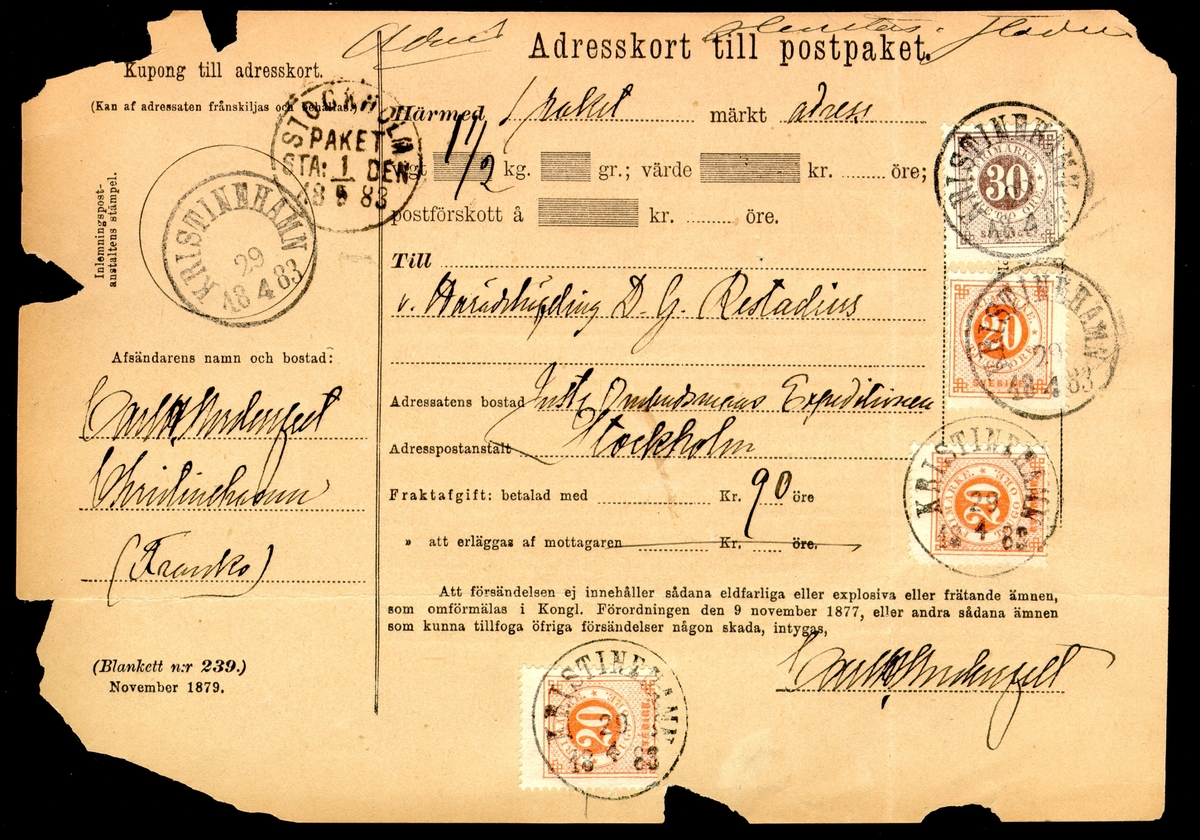 Adresskort till postpaket.
Kupong till adresskort.
(Kan af adressaten frånskiljas och behållas.)
Inlemningspost-
anstaltens stämpel.
KRISTINEHAMN
29
4
18 83
STOCKHOLM
PAKET
STA: 1 DEN
18 5 83
Afsändarens namn och bostad:
Christinehamn
(Franko)
(Blankett n:r 239.)
November 1879.
Härmed 1 paket märkt adress
vigt 1 1/2 kg. gr.; värde kr. öre;
postförskott å kr. öre.
Till
v. Häradshöfding D. G. Restadius
Adressatens bostad Ombudsmans Expeditionen
Adresspostanstalt Stockholm
Fraktafgift: betalad med Kr. 90 öre
» att erläggas af mottagaren Kr. öre.
Att försändelsen ej innehåller sådana eldfarliga eller explosiva eller frätande ämnen,
som omförmälas i Kongl. Förordningen den 9 november 1877, eller andra sådana ämnen
som kunna tillfoga öfriga försändelser någon skada, intygas,
KRISTINEHAMN
30
KRISTINEHAMN
29
4
18 83
20
SVERIGE
KRISTINEHAMN
29
4
18 83
20
KRISTINEHAMN
29
4
18 83
20